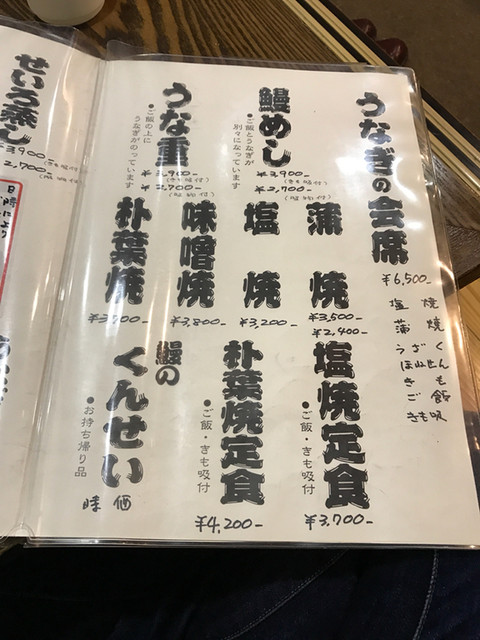 うなぎの会席
¥6,500-
塩焼
蒲焼
うざく
ほねせん
きも
ご飯
きも吸
鰻めし
・ご飯とうなぎが
別々になっています
¥3,900-
(きも吸付)
¥2,700-
うな重
・ご飯の上に
うなぎがのっています
¥3,900-
(きも吸付)
¥2,700-
蒲焼
¥3,500-
¥2,400-
塩焼
¥3,200-
味噌焼
¥3,800-
朴葉焼
塩焼定食
・ご飯・きも吸付
¥3,700-
朴葉焼定食
・ご飯・きも吸付
¥4,200-
鰻の
くんせい
・お持ち帰り品
時価
せいろ蒸し
¥3,900-
(きも吸付)
2,700-